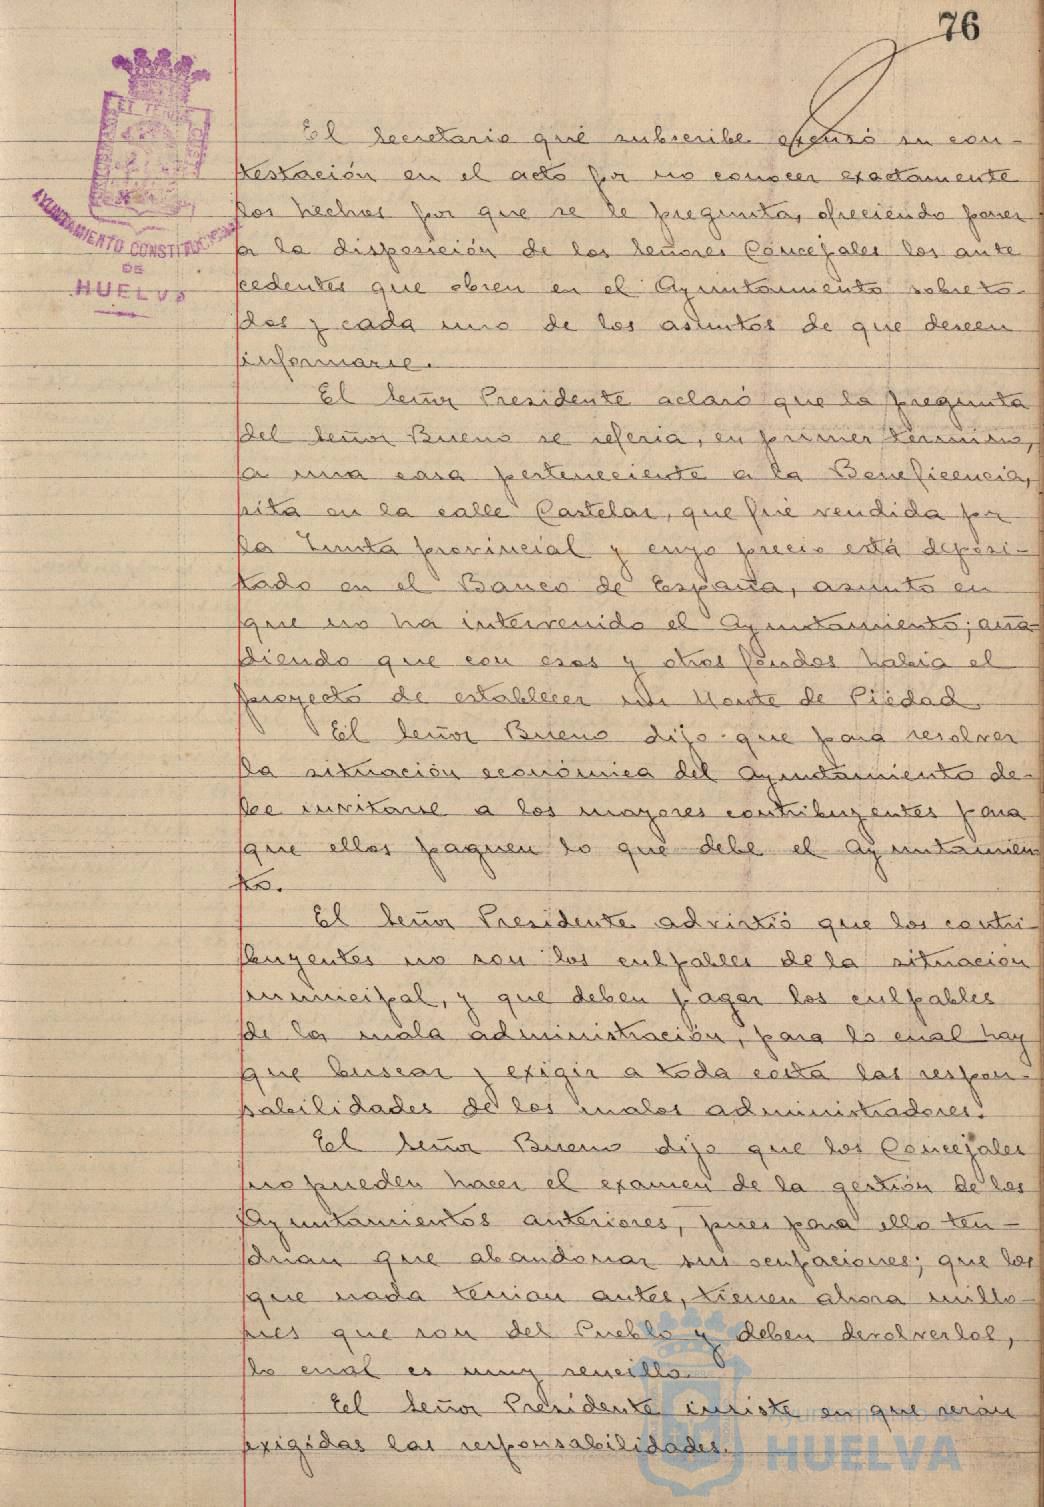 76
AYUNTAMIENTO CONSTITUCIONAL
DE
HUELVA
El Secretario que subscribe excusó su con-
testación en el acto por no conocer exactamente
los hechos por que se le pregunta, ofreciendo poner
a la disposición de los Señores Concejales los ante
cedentes que obren en el Ayuntamiento sobre to-
dos y cada uno de los asuntos de que deseen
informarse.
El Señor Presidente aclaró que la pregunta
del Señor Bueno se referia, en primer término,
a una casa perteneciente a la Beneficencia,
sita en la calle Castelar, que fué vendida por
la Junta provincial y cuyo precio está deposi-
tado en el Banco de España, asunto en
que no ha intervenido el Ayuntamiento; aña-
diendo que con esos y otros fondos habia el
proyecto de establecer un Monte de Piedad.
El Señor Bueno dijo que para resolver
la situación económica del Ayuntamiento de-
be invitarse a los mayores contribuyentes para
que ellos paguen lo que debe el Ayuntamien
to.
El Señor Presidente advirtió que los contri-
buyentes no son los culpables de la situación
municipal, y que deben pagar los culpables
de la mala administración, para lo cual hay
que buscar y exigir a toda costa las respon-
sabilidades de los malos administradores.
El Señor Bueno dijo que los Concejales
no pueden hacer el examen de la gestión de los
Ayuntamientos anteriores, pues para ello ten-
drian que abandonar sus ocupaciones; que los
que nada tenian antes, tienen ahora millo-
nes que son del Pueblo y deben devolverlos,
lo cual es muy sencillo.
El Señor Presidente insiste en que serán
exigidas las responsabilidades.
Ayuntamiento de
HUELVA